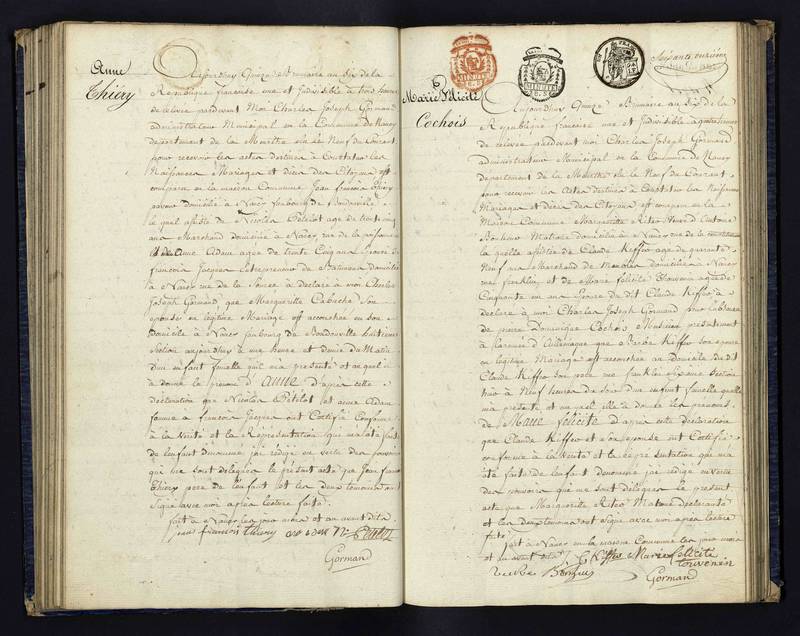 Anne
Thiery
Aujourdhuy Quinze Brumaire au Six de la
Republique française une et Indivisible à trois heures
de relevée pardevant Moi Charles Joseph Gormand
administrateur Municipal en la Commune de Nancy
département de la Meurthe élu le Neuf du Courant
pour recevoir les actes destinés à Constater les
Naissances Mariages et décès des Citoyens est
comparu en la maison Commune Jean françois Thiery
domicilié à Nancy faubourg de Boudonville
le quel assisté de Nicolas Petelot age de trente cinq
ans Marchand domicilié à Nancy, rue de la
et de Anne Adam agée de trente Cinq ans
françois Jacques Entrepreneur de Batimens domicilié
à Nancy rue de la à déclaré à moi Charles
Joseph Gormand, que Marguerite Cabuche Son
épouse en légitime Mariage est accouchée en son
domicile à Nancy faubourg de Boudonville huitieme
Section aujourdhuy à une heure et demie du Matin
d'un enfant femelle quil ma presenté et auquel il
à donné le prenom d'Anne d'après cette
déclaration que Nicolas Petelot et anne Adam
femme à françois Jacques ont Certifié Conforme
à la Verité et la Représentation qui ma été faite
de l'enfant denommé j'ai rédigé en vertu des pouvoirs
qui me sont délégués le présent acte que Jean françois
Thiery pere de l'enfant et les deux temoins ont
signé avec moi après lecture faite
fait à Nancy les jour mois et an avant dits
jean françois Thiery
Gormand
MINUTE
MINUTE
Soixante onzieme
Marie Félicité
Cochois
Aujourdhuy Quinze Brumaire au Six de la
République françoise une et Indivisible à quatre heures
de relevée pardevant moi Charles Joseph Gormand
administrateur Municipal en la Commune de Nancy
département de la Meurthe élu le Neuf du Courant
pour recevoir les Actes destinés à Constater les Naissances
Mariages et décès des Citoyens est comparu en la
Maison Commune Marguerite
Matrone domiciliée à Nancy rue de la
la quelle assistée de Claude Kiffer age de quarante
Neuf ans Marchand de domicilié à Nancy
rue franklin et de Marie félicité Thouvenin agée de
Cinquante un ans Epouse du dit Claude Kiffer à
déclaré à moi Charles Joseph Gormand pour l'absence
de pierre Dominique Cochois Musicien présentement
à l'armée d'Allemagne que Kiffer son épouse
en légitime Mariage est accouchée au Domicile du dit
Claude Kiffer son pere rue franklin Section
à Neuf heures du Soir d'un enfant femelle quelle
ma présenté et au quel elle à donné les prénoms
de Marie félicité d'après cette déclaration
que Claude Kiffer et son épouse ont Certifié
conforme à la Verité et la Représentation qui ma
été faite de l'enfant denommé j'ai rédigé en vertu
des pouvoirs qui me sont délégués le présent
acte que Marguerite Matrone déclarante
et les deux temoins ont signé avec moi après lecture
faite
fait à Nancy en la maison Commune les jour mois
et an avant dits C Kiffer Marie félicité
touvenin
Gormand